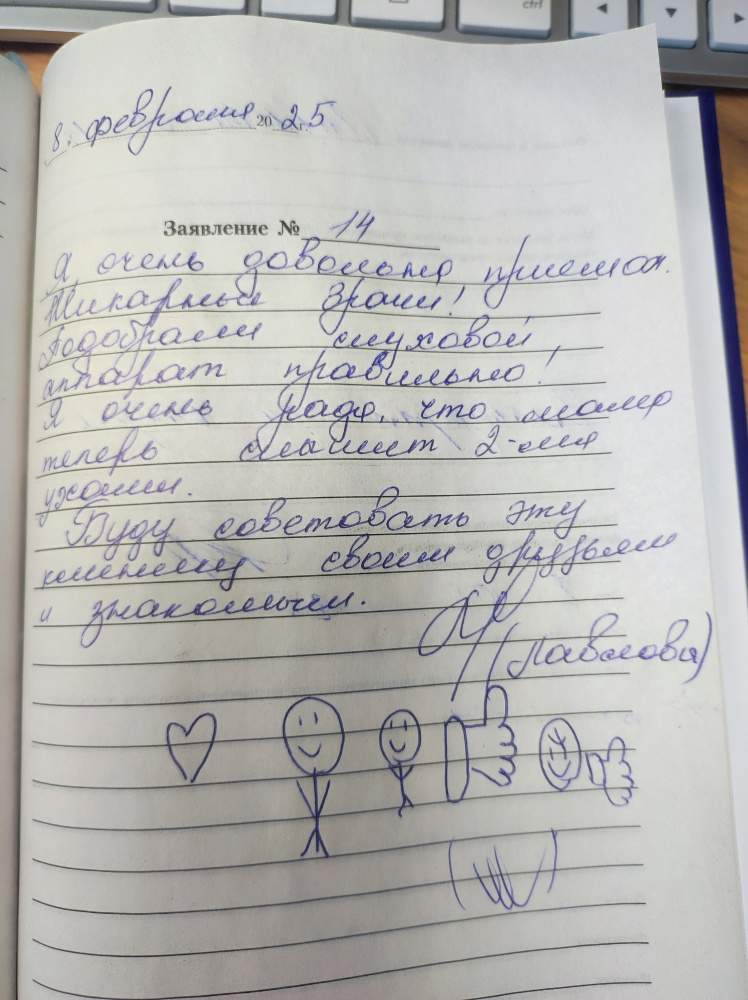 8. февраля 2025
Заявление № 14
Я очень довольна приемом.
Шикарные врачи!
Подобрали слуховой
аппарат правильно!
Я очень рада, что мама
теперь слышит 2-мя
ушами.
Буду советовать эту
клинику своим друзьям
и знакомым.
(Павлова)
ctrl